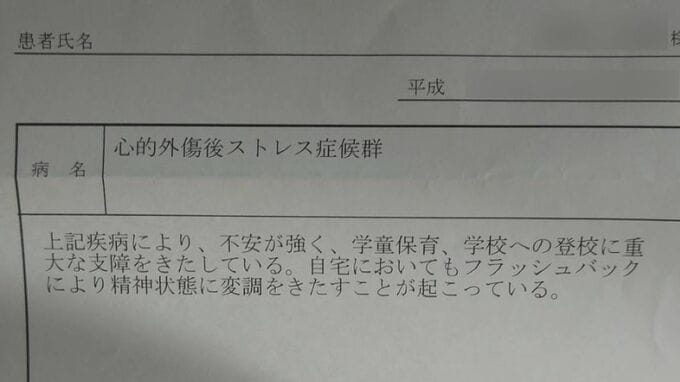 患者氏名
様
平成
病 名
心的外傷後ストレス症候群
上記疾病により、不安が強く、学童保育、学校への登校に重
大な支障をきたしている。自宅においてもフラッシュバック
により精神状態に変調をきたすことが起こっている。